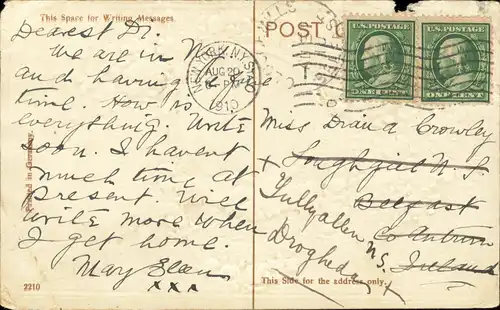 This Space for Writing Messages
Dearest Di.
We are in N
and having
time. How is
everything. Write
soon. I havent
much time at
present. Will
write more when
I get home.
May Ellen
x x x
Printed in Germany.
2210
POST
NEW YORK, N.Y. STA.O
AUG 20
PM
1910
ONE CENT
ONE CENT
Miss Diana Crowley
Loughgiel N.S
Belfast
Co Antrim
Ireland
+ Tullyallen N.S.
Drogheda +
This Side for the address only.